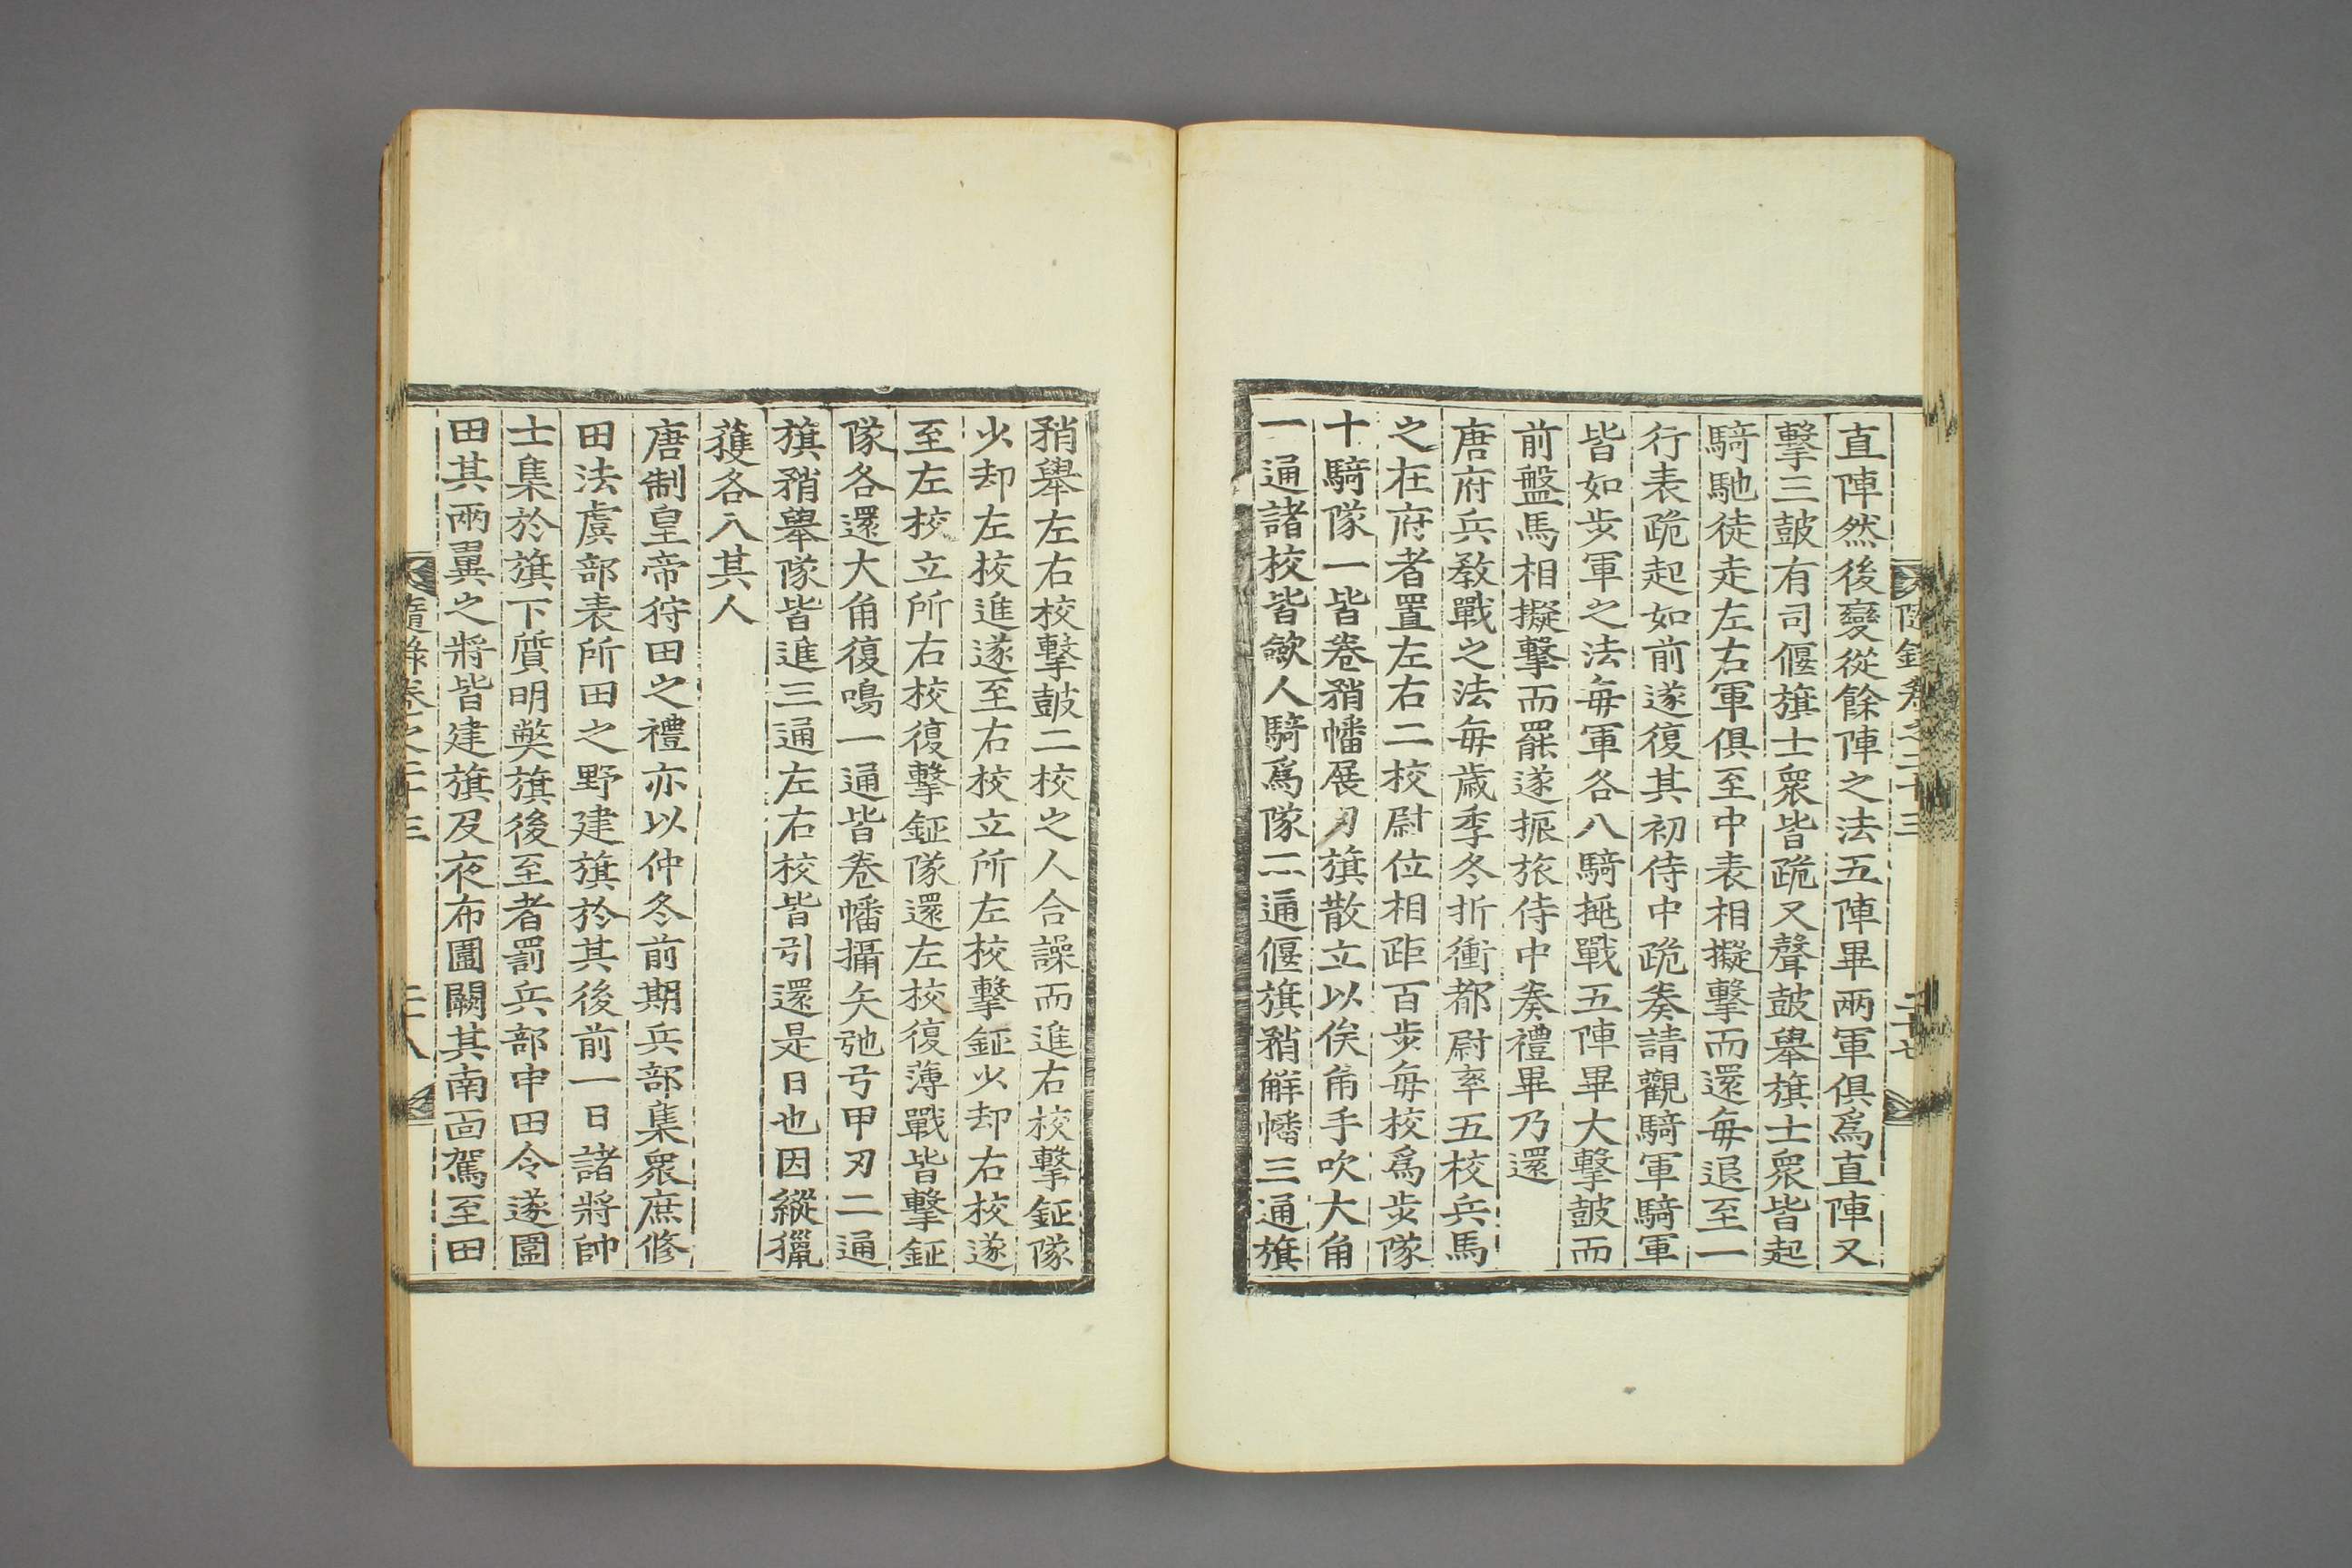 隨錄卷之二十三
二十七
直陣然後變從餘陣之法五陣畢兩軍俱爲直陣又
擊三鼓有司偃旗士衆皆跪又聲鼓舉旗士衆皆起
騎馳徒走左右軍俱至中表相擬擊而還每退至一
行表跪起如前遂復其初侍中跪奏請觀騎軍騎軍
皆如步軍之法每軍各八騎挑戰五陣畢大擊鼓而
前盤馬相擬擊而罷遂振旅侍中奏禮畢乃還
唐府兵敎戰之法每歲季冬折衝都尉率五校兵馬
之在府者置左右二校尉位相距百步每校爲步隊
十騎隊一皆卷矟幡展刃旗散立以俟角手吹大角
一通諸校皆歛人騎爲隊二通偃旗矟解幡三通旗
矟舉左右校擊鼓二校之人合譟而進右校擊鉦隊
少却左校進遂至右校立所左校擊鉦少却右校遂
至左校立所右校復擊鉦隊還左校復薄戰皆擊鉦
隊各還大角復鳴一通皆卷幡攝矢弛弓甲刃二通
旗矟舉隊皆進三通左右校皆引還是日也因縱獵
獲各入其人
唐制皇帝狩田之禮亦以仲冬前期兵部集衆庶修
田法虞部表所田之野建旗於其後前一日諸將帥
士集於旗下質明獘旗後至者罰兵部申田令遂圍
田其兩翼之將皆建旗及夜布圍闕其南面駕至田
隨錄卷之二十三
二十八